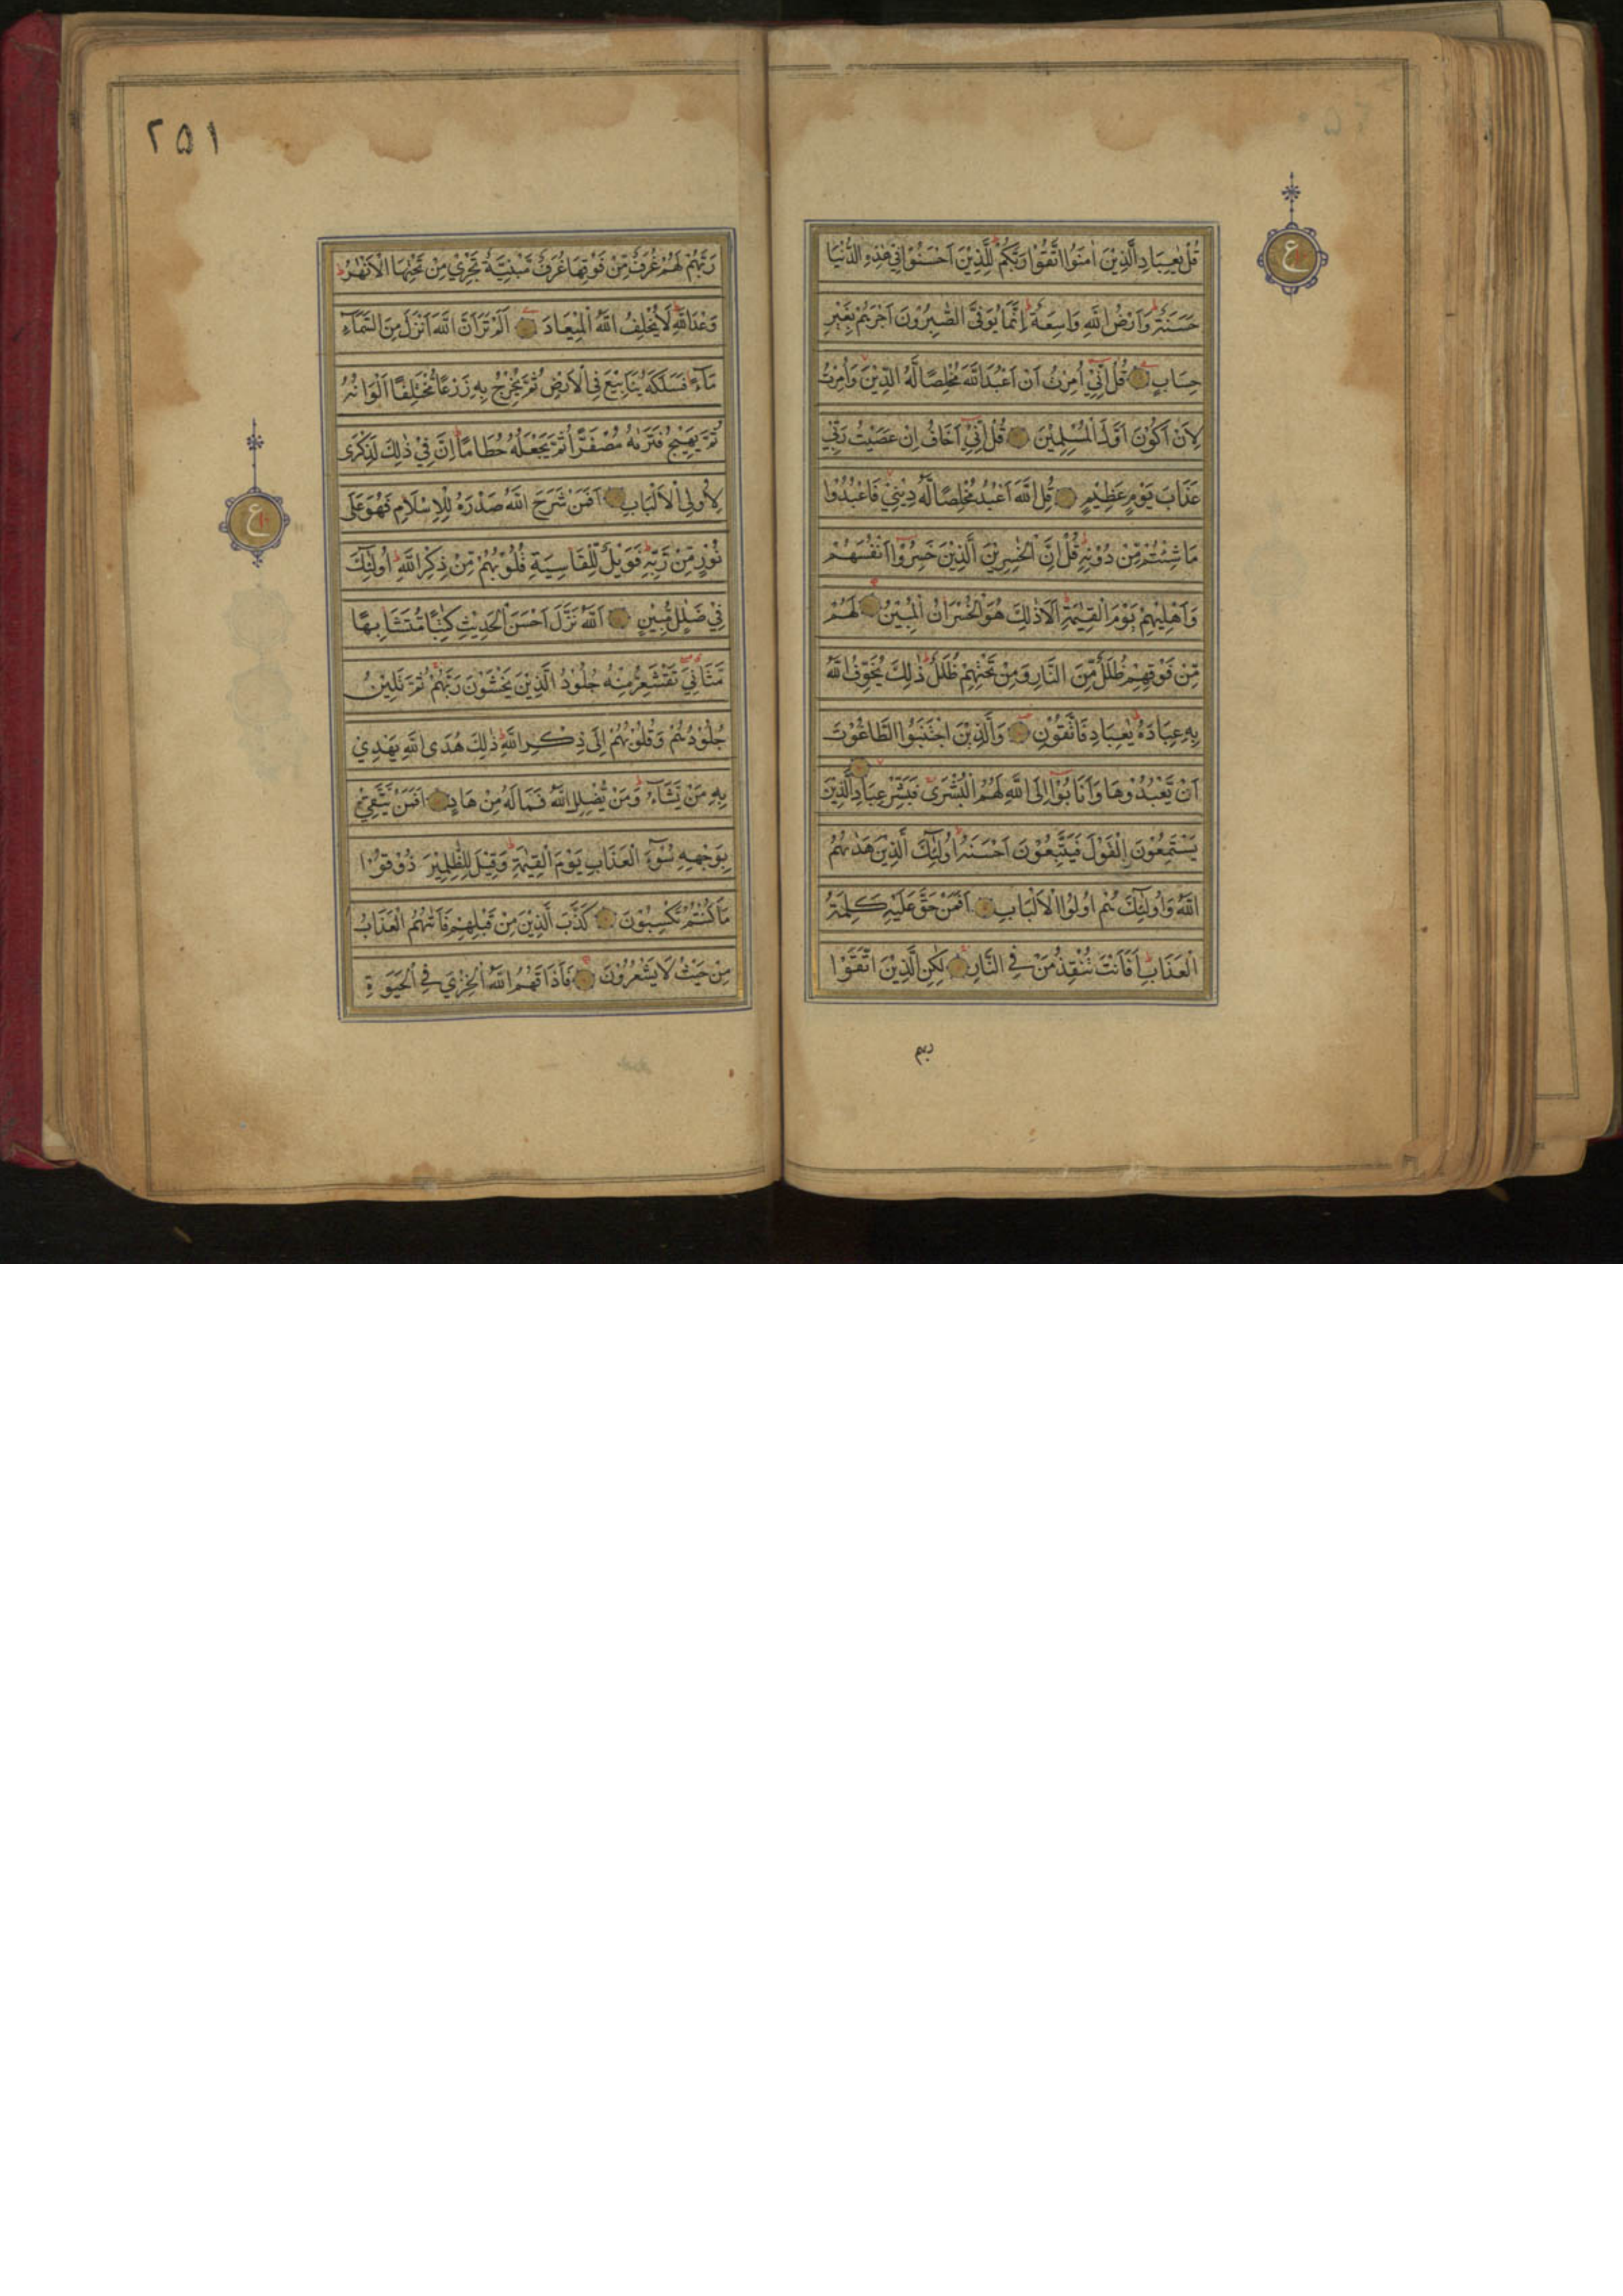 قُلْ يٰعِبَادِ الَّذِيْنَ اٰمَنُوا اتَّقُوْا رَبَّكُمْ لِلَّذِيْنَ اَحْسَنُوْا فِيْ هٰذِهِ الدُّنْيَا
حَسَنَةٌ وَاَرْضُ اللّٰهِ وَاسِعَةٌ اِنَّمَا يُوَفَّى الصّٰبِرُوْنَ اَجْرَهُمْ بِغَيْرِ
حِسَابٍ قُلْ اِنِّيْ اُمِرْتُ اَنْ اَعْبُدَ اللّٰهَ مُخْلِصًا لَهُ الدِّيْنَ وَاُمِرْتُ
لِاَنْ اَكُوْنَ اَوَّلَ الْمُسْلِمِيْنَ قُلْ اِنِّيْ اَخَافُ اِنْ عَصَيْتُ رَبِّيْ
عَذَابَ يَوْمٍ عَظِيْمٍ قُلِ اللّٰهَ اَعْبُدُ مُخْلِصًا لَّهُ دِيْنِيْ فَاعْبُدُوْا
مَا شِئْتُمْ مِّنْ دُوْنِهٖ قُلْ اِنَّ الْخٰسِرِيْنَ الَّذِيْنَ خَسِرُوْا اَنْفُسَهُمْ
وَاَهْلِيْهِمْ يَوْمَ الْقِيٰمَةِ اَلَا ذٰلِكَ هُوَ الْخُسْرَانُ الْمُبِيْنُ لَهُمْ
مِّنْ فَوْقِهِمْ ظُلَلٌ مِّنَ النَّارِ وَمِنْ تَحْتِهِمْ ظُلَلٌ ذٰلِكَ يُخَوِّفُ اللّٰهُ
بِهٖ عِبَادَهُ يٰعِبَادِ فَاتَّقُوْنِ وَالَّذِيْنَ اجْتَنَبُوا الطَّاغُوْتَ
اَنْ يَّعْبُدُوْهَا وَاَنَابُوْا اِلَى اللّٰهِ لَهُمُ الْبُشْرٰى فَبَشِّرْ عِبَادِ الَّذِيْنَ
يَسْتَمِعُوْنَ الْقَوْلَ فَيَتَّبِعُوْنَ اَحْسَنَهُ اُولٰٓئِكَ الَّذِيْنَ هَدٰىهُمُ
اللّٰهُ وَاُولٰٓئِكَ هُمْ اُولُوا الْاَلْبَابِ اَفَمَنْ حَقَّ عَلَيْهِ كَلِمَةُ
الْعَذَابِ اَفَاَنْتَ تُنْقِذُ مَنْ فِي النَّارِ لٰكِنِ الَّذِيْنَ اتَّقَوْا
ربهم
ع
٢۵١
رَبَّهُمْ لَهُمْ غُرَفٌ مِّنْ فَوْقِهَا غُرَفٌ مَّبْنِيَّةٌ تَجْرِيْ مِنْ تَحْتِهَا الْاَنْهٰرُ
وَعْدَ اللّٰهِ لَا يُخْلِفُ اللّٰهُ الْمِيْعَادَ اَلَمْ تَرَ اَنَّ اللّٰهَ اَنْزَلَ مِنَ السَّمَآءِ
مَآءً فَسَلَكَهٗ يَنَابِيْعَ فِي الْاَرْضِ ثُمَّ يُخْرِجُ بِهٖ زَرْعًا مُّخْتَلِفًا اَلْوَانُهٗ
ثُمَّ يَهِيْجُ فَتَرٰىهُ مُصْفَرًّا ثُمَّ يَجْعَلُهٗ حُطَامًا اِنَّ فِيْ ذٰلِكَ لَذِكْرٰى
لِاُولِي الْاَلْبَابِ اَفَمَنْ شَرَحَ اللّٰهُ صَدْرَهٗ لِلْاِسْلَامِ فَهُوَ عَلٰى
نُوْرٍ مِّنْ رَّبِّهٖ فَوَيْلٌ لِّلْقَاسِيَةِ قُلُوْبُهُمْ مِّنْ ذِكْرِ اللّٰهِ اُولٰٓئِكَ
فِيْ ضَلٰلٍ مُّبِيْنٍ اَللّٰهُ نَزَّلَ اَحْسَنَ الْحَدِيْثِ كِتٰبًا مُّتَشَابِهًا
مَّثَانِيَ تَقْشَعِرُّ مِنْهُ جُلُوْدُ الَّذِيْنَ يَخْشَوْنَ رَبَّهُمْ ثُمَّ تَلِيْنُ
جُلُوْدُهُمْ وَقُلُوْبُهُمْ اِلٰى ذِكْرِ اللّٰهِ ذٰلِكَ هُدَى اللّٰهِ يَهْدِيْ
بِهٖ مَنْ يَّشَآءُ وَمَنْ يُّضْلِلِ اللّٰهُ فَمَا لَهٗ مِنْ هَادٍ اَفَمَنْ يَّتَّقِيْ
بِوَجْهِهٖ سُوْٓءَ الْعَذَابِ يَوْمَ الْقِيٰمَةِ وَقِيْلَ لِلظّٰلِمِيْنَ ذُوْقُوْا
مَا كُنْتُمْ تَكْسِبُوْنَ كَذَّبَ الَّذِيْنَ مِنْ قَبْلِهِمْ فَاَتٰىهُمُ الْعَذَابُ
مِنْ حَيْثُ لَا يَشْعُرُوْنَ فَاَذَاقَهُمُ اللّٰهُ الْخِزْيَ فِي الْحَيٰوةِ
ع